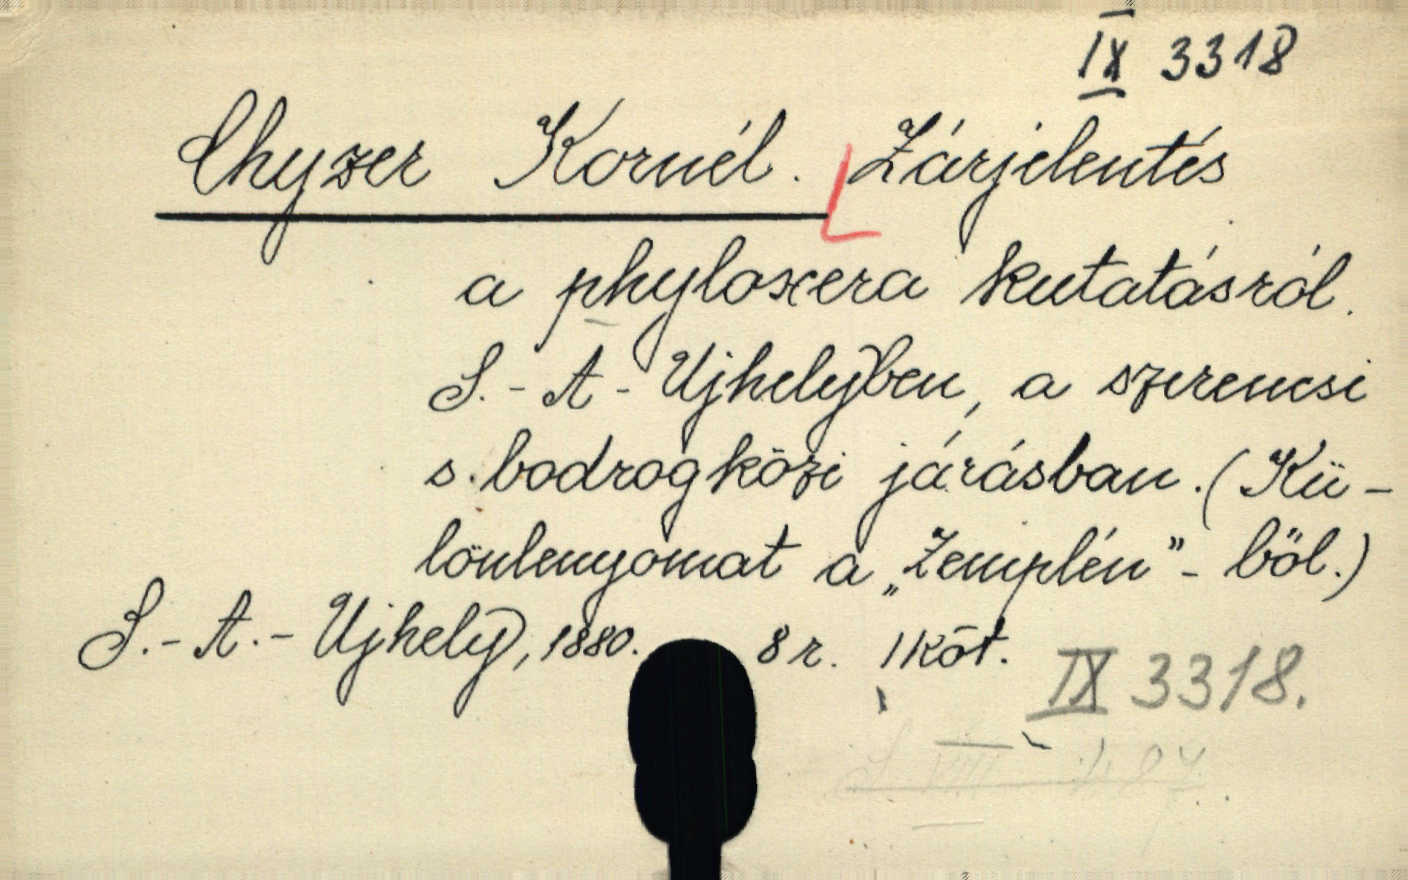 IX 3318
Chyzer Kornél. Zárjelentés
a phyloxera kutatásról.
S.-A-Ujhelyben, a szerencsi
s. bodrogközi járásban. (Kü-
lönlenyomat a „Zemplén"-ből.)
S.-A.-Ujhely, 1880. 8 r. 1 köt.
IX 3318.